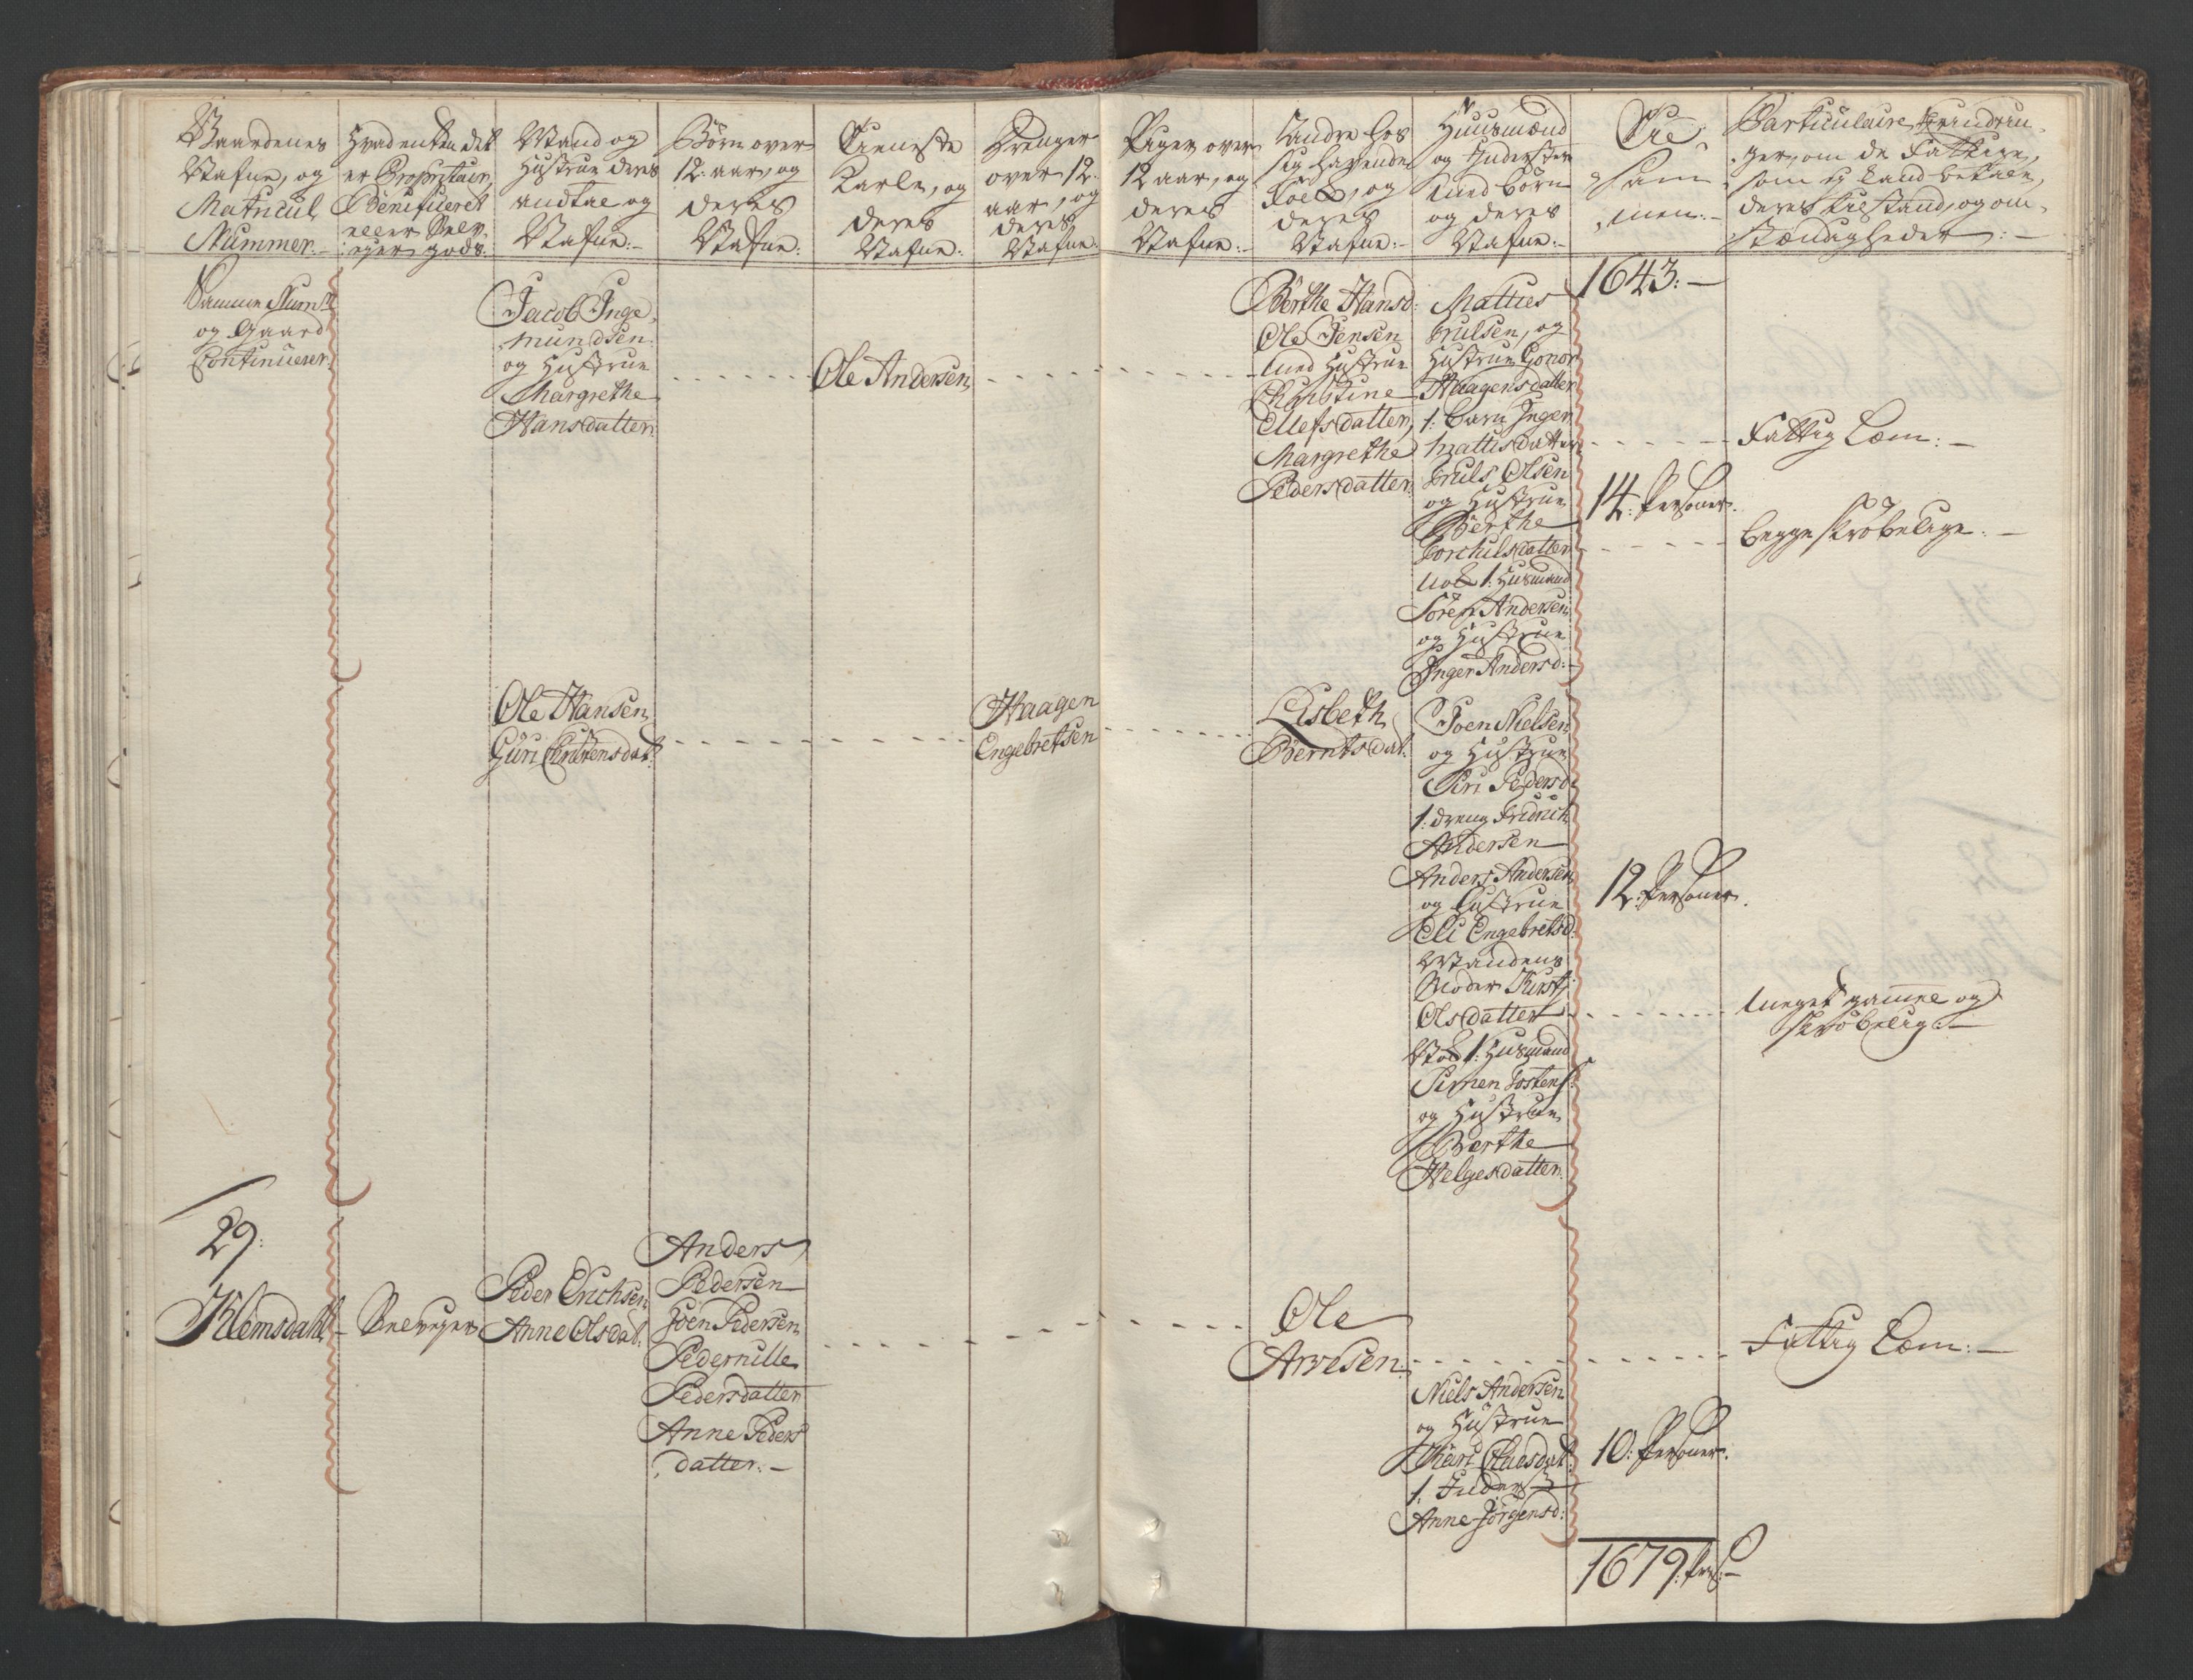 Gaardenes
Nafne, og
Matricul
Nummer.-
Hvad enten det
er Proprietair,
Benificeret
eller Selv-
ejer gods.
Mand og
Hustrue deres
andtal og
Nafne:-
Børn over
12. aar, og
deres
Nafne:
Tieneste
Karle, og
deres
Nafne:
Drenger
over 12.
aar, og
deres
Nafne:
Piger over
12 aar, og
deres
Nafne:-
Andre hos
sig havende
Folk, og
deres
Nafne:-
Huusmænd
og Inderster
med børn
og deres
Nafne:-
Til
Sam
men:-
Particulaire
ger, om de Fattige,
som ej kand betale,
deres tilstand, og om-
stændigheder:-
Samme Num
og Gaard
Continuerer.
Jacob Inge-
mundsen
og Hustrue
Margrethe
Hansdatter
Ole Andersen
Berthe Hansd:
Ole Jensen
med Hustrue
Christine
Ellefsdatter,
Margrethe
Pedersdatter.
Matties
Trulsen, og
Hustrue Gonor
Haagensdatter
1: barn Inger
Mattisdatter
Truls Olsen
og Hustrue
Berthe
Torchilsdatter
nok 1: Husmand
Søren Andersen
og Hustrue
Inger Andersd:-
1643:-
14: Personer.
Fattig Lem:-
begge skrøbelige:-
Ole Hansen
Guri Christensdat:
Haagen
Engebretsen
Lisbeth
Berntsdat:
Joen Nielsen
og Hustrue
Siri Pedersd
1: dreng Fridrich
Andersen
Anders Andersen
og Hustrue
Eli Engebretsd:
Mandens
Moder Kirsti
Olsdatter
Nok 1: Husmand
Simen Tostens:
og Hustrue
Berthe
Helgesdatter.
12: Personer.
meget gamel og
skrøbelig:-
29:
Klemsdahl
Selvejer
Peder Erichsen
Anne Olsdat:
Anders
Pedersen
Joen Pedersen
Pedernille
Pedersdatter
Anne Peders
datter:-
Ole
Arvesen:
Niels Andersen
og Hustrue
1. Inderst
Anne Jörgensd:
10: Personer.
Fattig Lem:-
1679: Pers:-